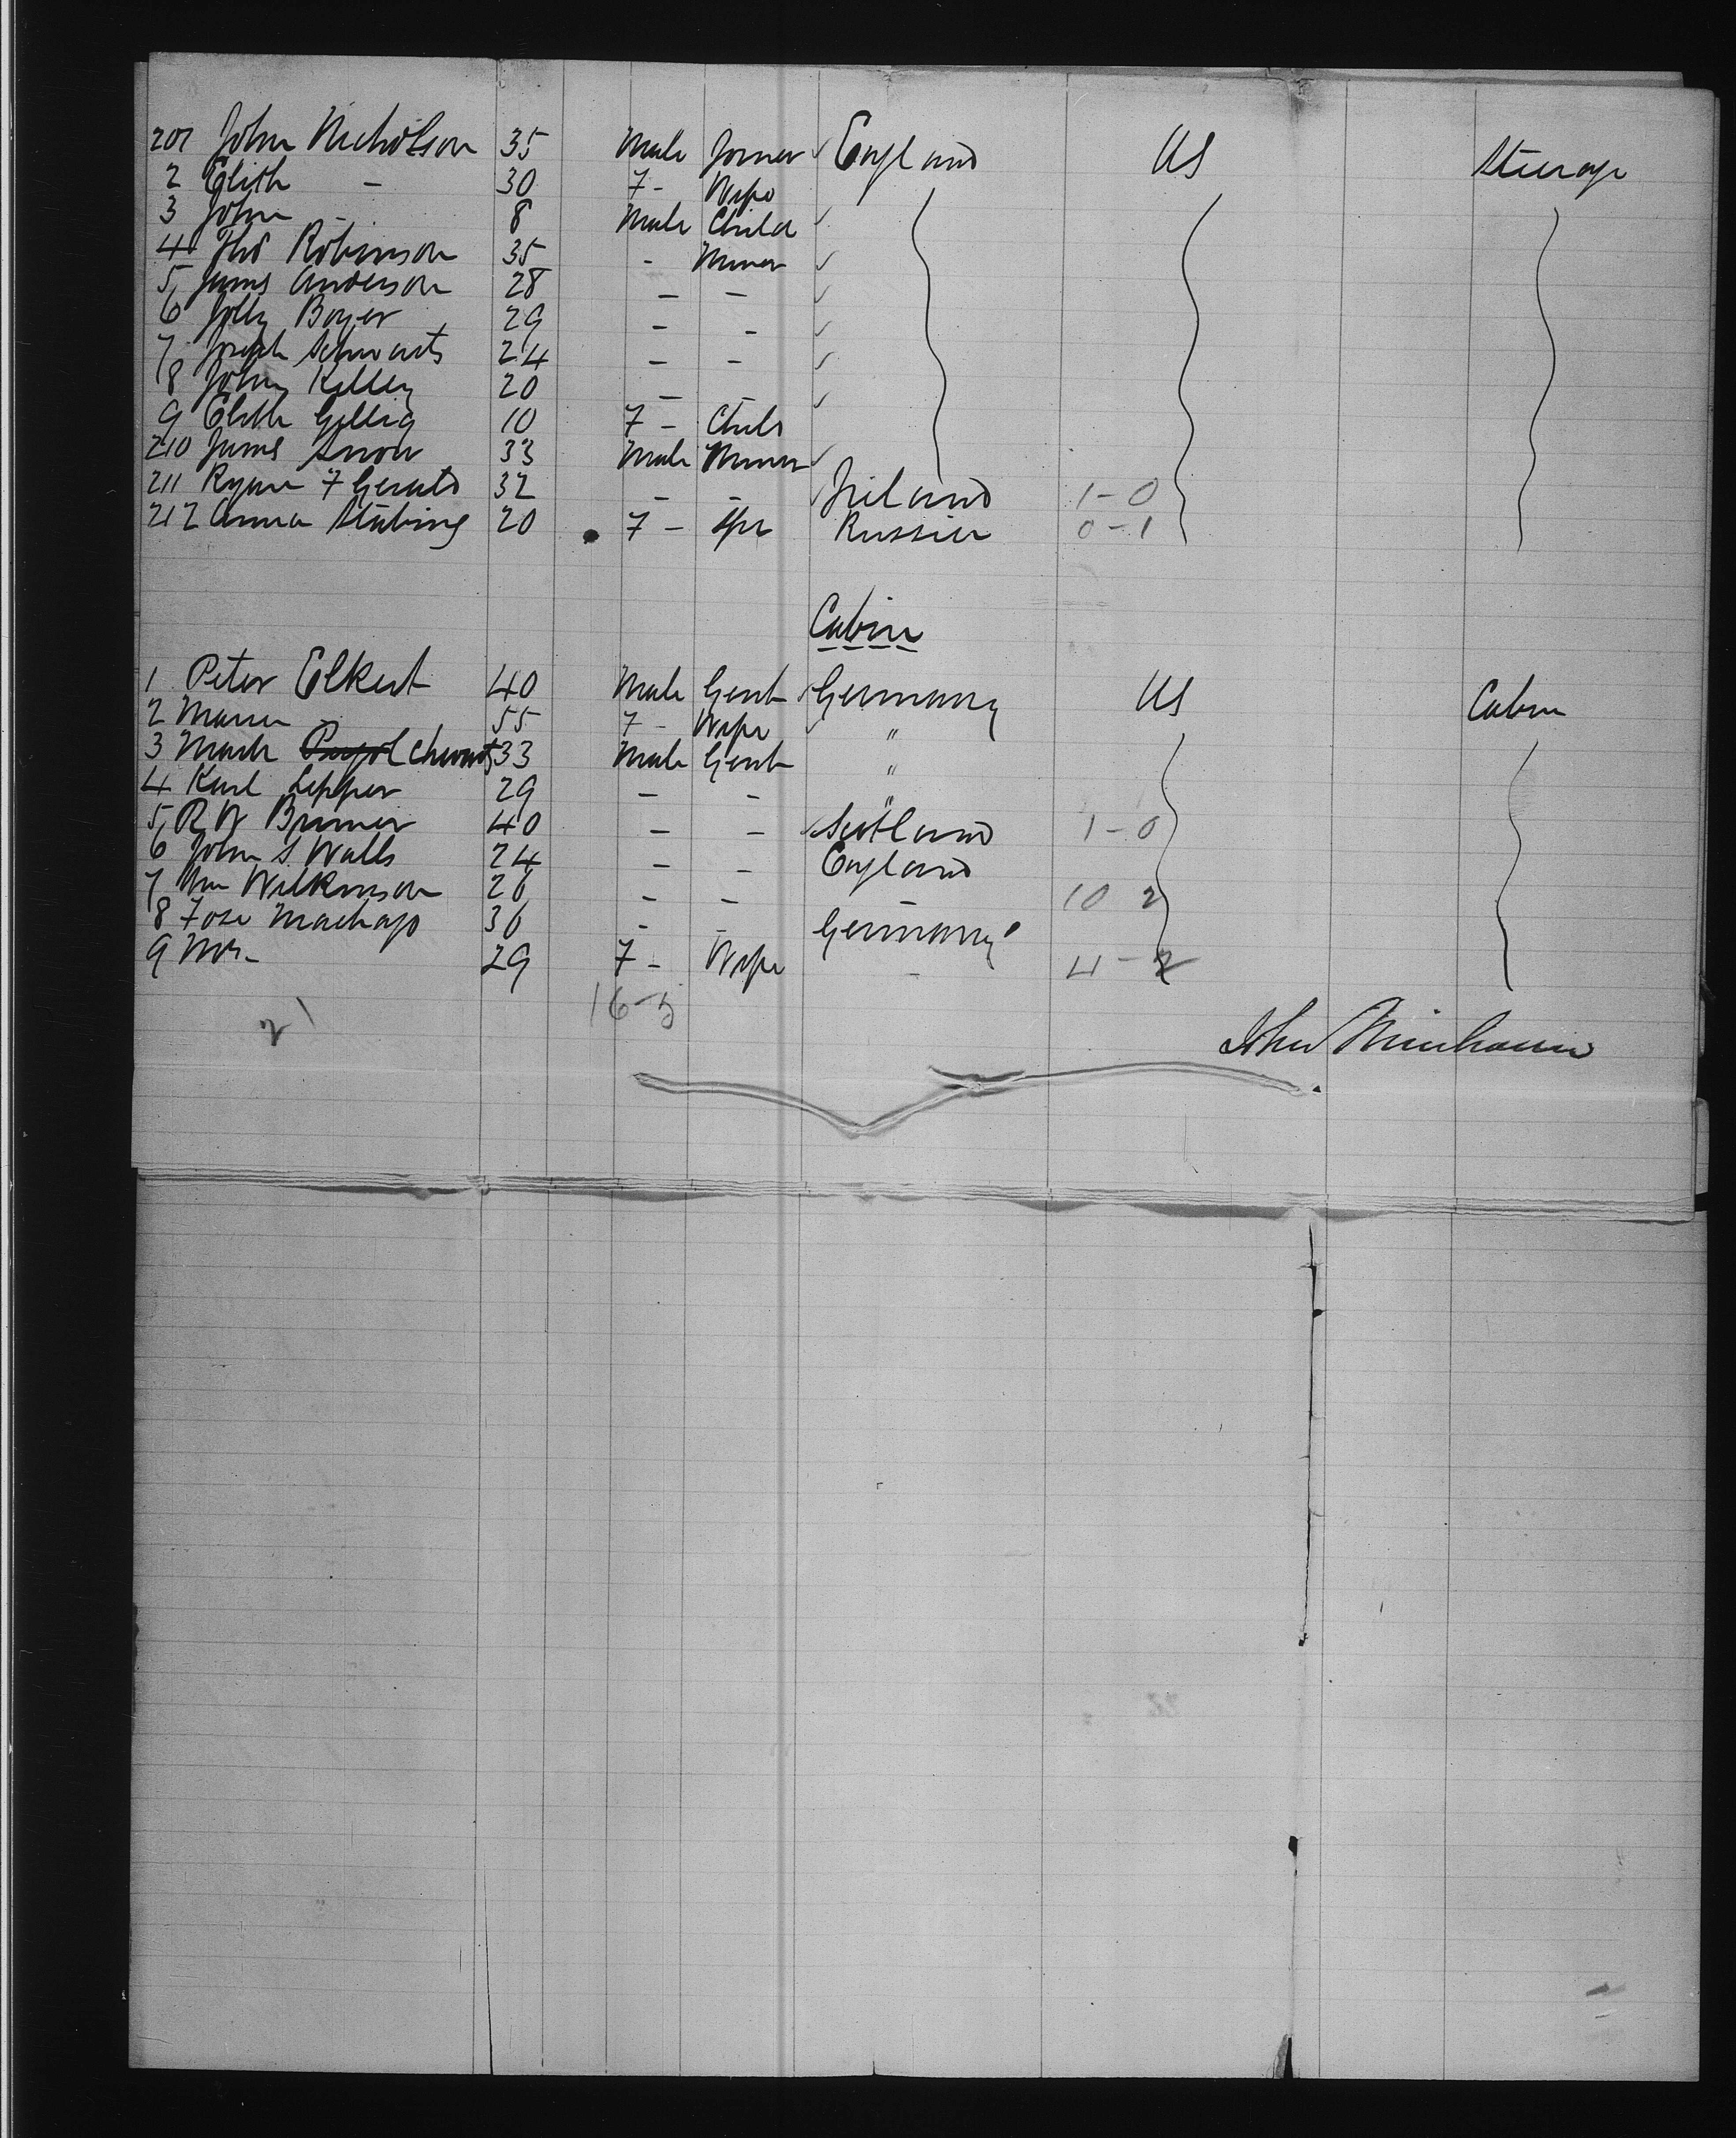 201 John Nicholson 35 Male Joiner England US Steerage
2 Elith - 30 F - Wife
3 John - 8 Male Child
4 Tho Robinson 35 - Miner
5 James Anderson 28 - -
6 Jolly Boyer 29 - -
7 Joseph Schwarts 24 - -
8 Johny Kelley 20 - -
9 Elith Gillig 10 F - Child
210 James Snow 33 Male Miner
211 Ryan F Gerald 32 - - Ireland 1-0
212 Anna Stubing 20 F - Spr Russia 0-1
Cabin
1 Peter Elkert 40 Male Gent Germany US Cabin
2 Maria - 55 F - Wife "
3 Mark Chwarts 33 Male Gent "
4 Karl Lepper 29 - - "
5 R W Brumer 40 - - Scotland 1-0
6 John S Walls 24 - - England
7 Wm Wilkinson 26 - - 10 2
8 36 - - Germany
9 Mrs - 29 F - Wife - 4-2
21 16-5
John